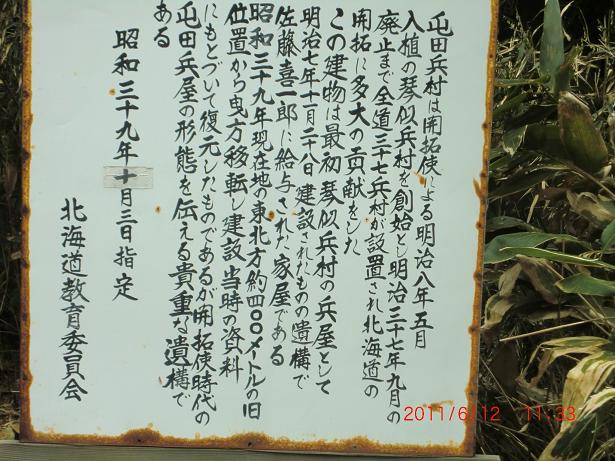 屯田兵村は開拓使による明治八年五月
入植の琴似兵村を創始とし明治三十七年九月の
廃止まで全道三十七兵村が設置され北海道の
開拓に多大の貢献をした
この建物は最初琴似兵村の兵屋として
明治七年十一月二十八日建設されたものの遺構で
佐藤喜一郎に給与された家屋である
昭和三十九年現在地の東北方約四〇〇メートルの旧
位置から曳方移転し建設当時の資料
にもとづいて復元したものであるが開拓使時代の
屯田兵屋の形態を伝える貴重な遺構で
ある
昭和三十九年十月三日指定
北海道教育委員会
2011/6/12 11:33